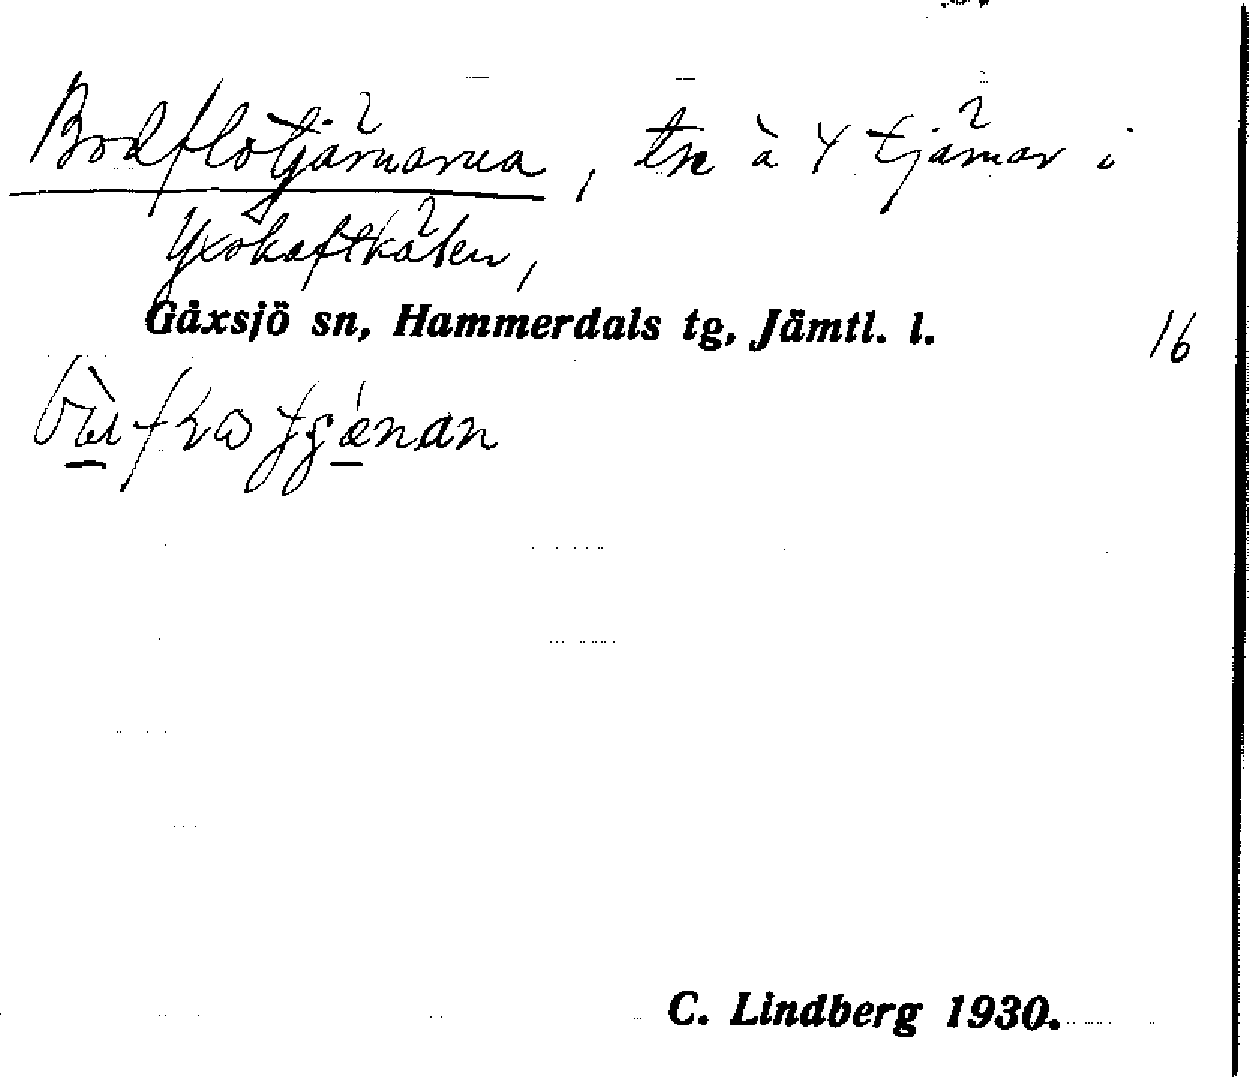 Bodflotjärnarna, tre à 4 tjärnar i
Yxskaftkälen,
Gåxsjö sn, Hammerdals tg, Jämtl. l.
16
C. Lindberg 1930.